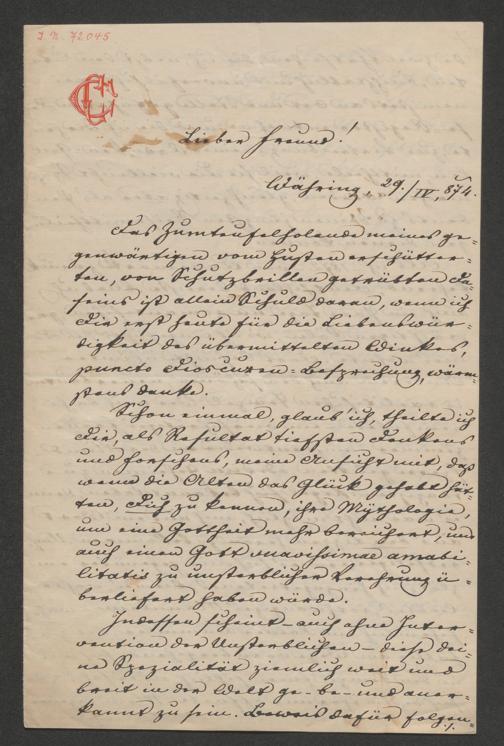 I. N. 72045
Lieber Freund!
Währing, 29./IV, 874.
Das Zumteufelholende meines ge-
genwärtigen vom Husten erschütter-
ten, von Schutzbrillen getrübten Da-
seins ist allein Schuld daran, wenn ich
Dir erst heute für die Liebenswür-
digkeit des übermittelten Winkes,
puncto Dioscuren-Besprechung, wärm-
stens danke.
Schon einmal, glaub' ich, theilte ich
Dir, als Resultat tiefsten Denkens
und Forschens, meine Ansicht mit, daß
wenn die Alten das Glück gehabt hät-
ten, Dich zu kennen, ihre Mythologie,
um eine Gottheit mehr bereichert, uns
auch einen Gott suavissimae amabi-
litatis zu unsterblicher Verehrung ü-
berliefert haben würde.
Indessen scheint – auch ohne Inter-
vention der Unsterblichen – diese dei-
ne Spezialität ziemlich weit und
breit in der Welt ge- be- und aner-
kannt zu sein. Beweis dafür folgen-
./.